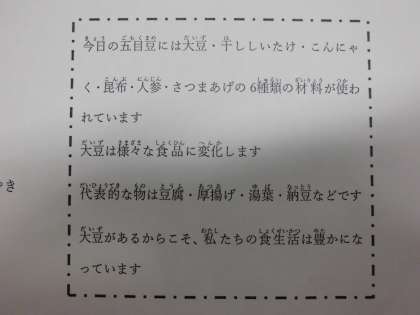 今日の五目豆には大豆・干ししいたけ・こんにゃ
く・昆布・人参・さつまあげの6種類の材料が使わ
れています
大豆は様々な食品に変化します
代表的な物は豆腐・厚揚げ・湯葉・納豆などです
大豆があるからこそ、私たちの食生活は豊かにな
っています
やき